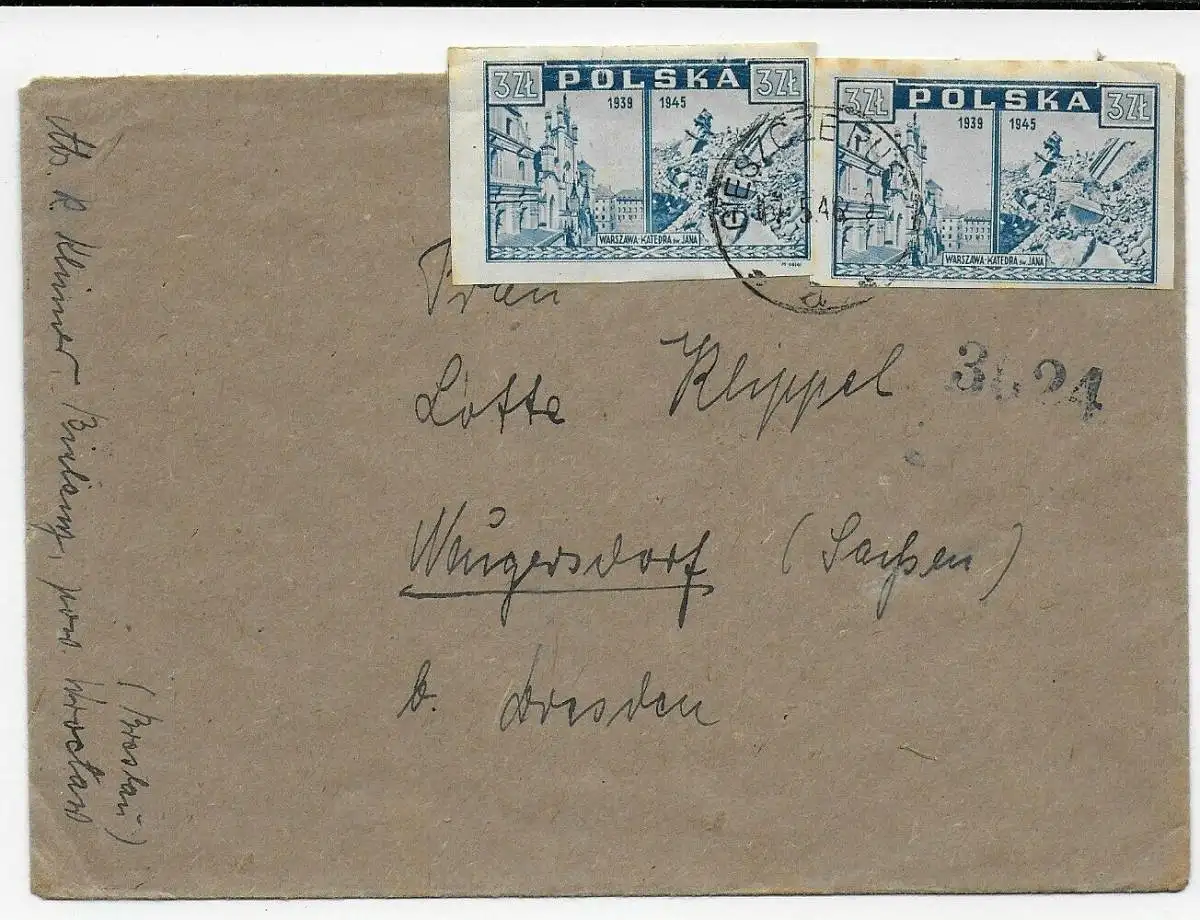 3ZŁ POLSKA 3ZŁ
1939 1945
WARSZAWA·KATEDRA ŚW. JANA
3ZŁ POLSKA 3ZŁ
1939 1945
WARSZAWA·KATEDRA ŚW. JANA
Frau
Lotte Klippel
Weugersdorf (Sachsen)
b. Dresden
24
Ab. R.
pow. Wrocław
(Breslau)